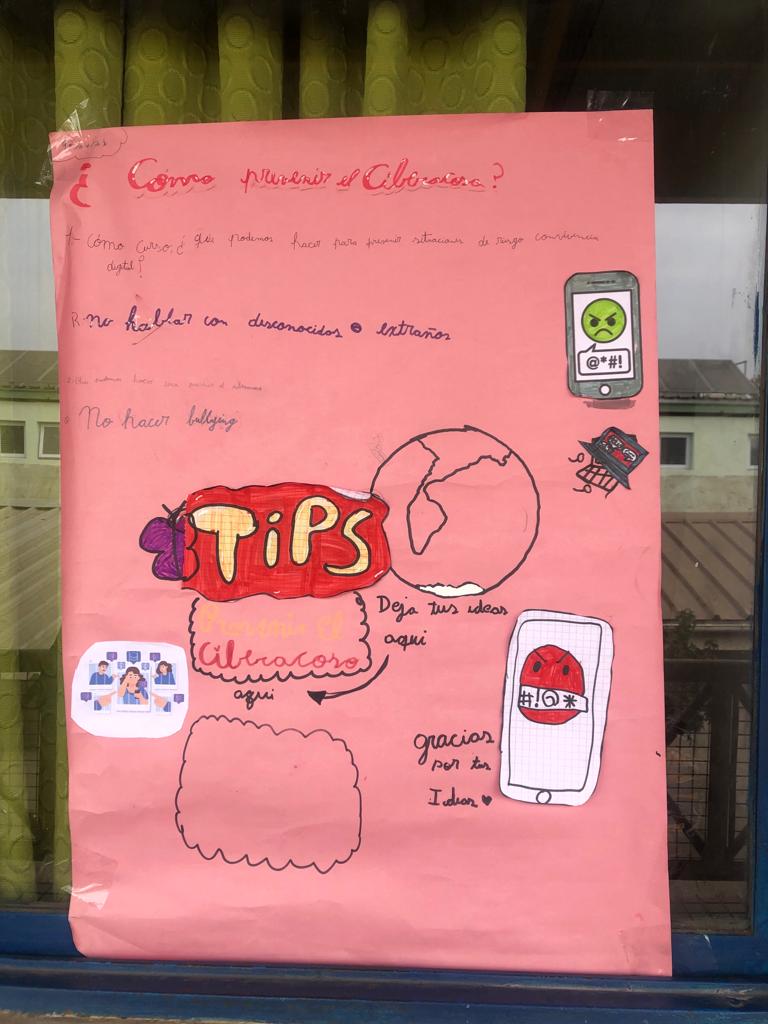 ¿ Cómo prevenir el Ciberacoso?
1- Cómo curso, ¿ qué podemos hacer para prevenir situaciones de riesgo convivencia
digital?
R- no hablar con desconocidos o extraños
@*#!
No hacer bullying
TIPS
Prevenir El
Ciberacoso
Deja tus ideas
aqui
aqui
#!@*
gracias
por tus
Ideas